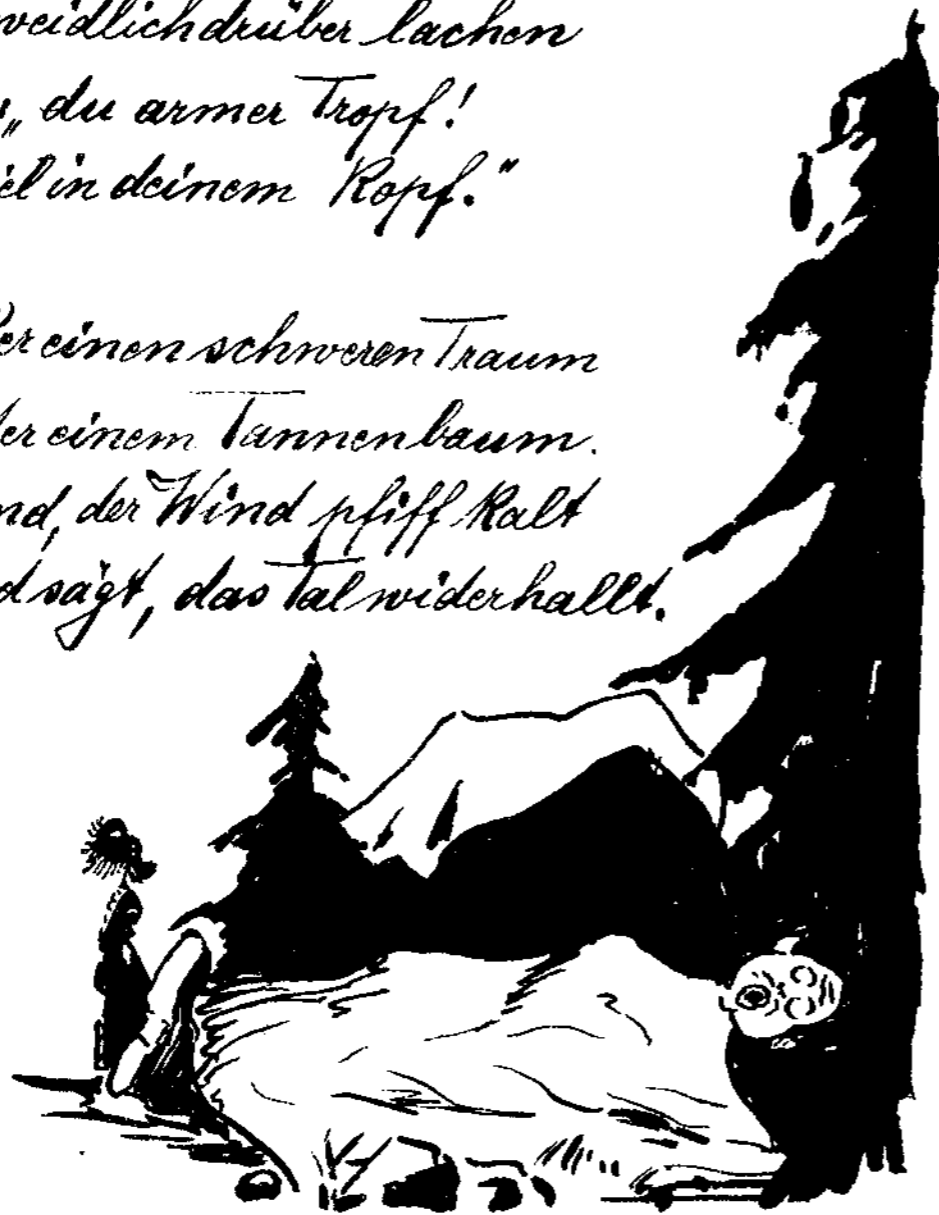 weidlich drüber lachen
„du armer Tropf!
in deinem Kopf."
einen schweren Traum
einem Tannenbaum.
der Wind pfiff kalt
sägt, das Tal widerhallt.